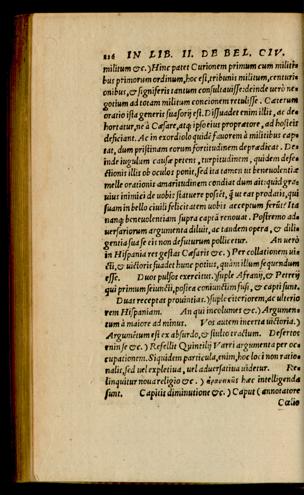 216 IN LIB. II. DE BEL. CIV.
militum &c.) Hinc patet Curionem primum cum militi-
bus primorum ordinum, hoc est, tribunis militum, centuri-
onibus, & signiferis tantum consultauisse: deinde uerò ne-
gotium ad totam militum concionem retulisse. Cæterum
oratio ista generis suasorij est. Dissuadet enim illis, ac de-
hortatur, ne à Cæsare, atq; ipso eius proprætore, ad hosteis
deficiant. Ac in exordiolo quidē fauorem à militibus cap-
tat, dum pristinam eorum fortitudinem deprædicat. De-
inde iugulum causæ petens, turpitudinem, quidem defe-
ctionis illis ob oculos ponit, sed ita tamen ut beneuolentiæ
melle orationis amaritudinem condiat dum ait: quid gra-
uius inimici de uobis statuere possēt, q̃ ut eos prodatis, qui
suam in bello ciuili felicitatem uobis acceptum ferūt? Ita
nanq; beneuolentiam supra captā renouat. Postremo ad-
uersariorum argumenta diluit, ac tandem opera, & dili-
gentia sua se eis non defuturum pollicetur. An uerò
in Hispania res gestas Cæsaris &c.) Per collationem ui-
cti, & uictoris suadet hunc potius, quàm illum sequendum
esse. Duos pulsos exercitus.) suple Afranij, & Petreij
qui primum seiuncti, postea coniunctim fusi, & capti sunt.
Duas receptas prouintias.) suple citeriorem, ac ulterio
rem Hispaniam. An qui incolumes &c.) Argumen-
tum à maiore ad minus. Vos autem incerta uictoria.)
Argumētum est ex absurdo, & stulto tractum. Desertos
enim se &c.) Refellit Quintilij Varri argumenta per oc-
cupationem. Siquidem particula, enim, hoc loci non ratio-
nalis, sed uel expletiua, uel aduersatiua uidetur. Re-
linquitur noua religio &c.) hæc intelligenda
sunt. Capitis diminutione &c.) Caput (annotatore
Cælio